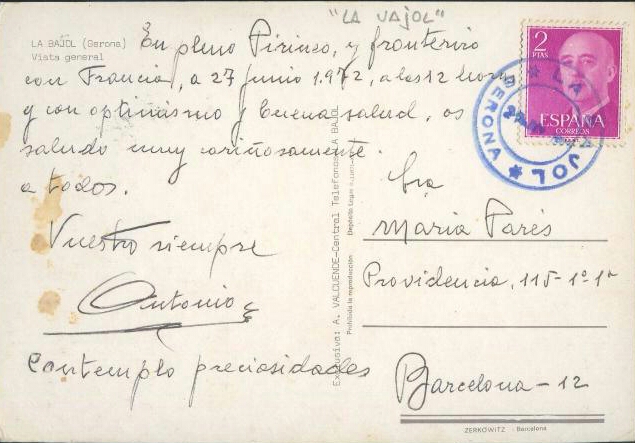 "LA VAJOL"
LA BAJOL (Gerona)
Vista general
En pleno Pirineo, y fronterizo
con Francia, a 27 junio 1.972, a las 12 horas
y con optimismo y buena salud, os
saludo muy cariñosamente
a todos.
Vuestro siempre
Antonio
Contemplo preciosidades
Exclusiva: A. VALCUENDE-Central Telefonos LA BAJOL
Prohibida la reproducción Depósito Legal
2
PTAS
ESPAÑA
CORREOS
LA VAJOL
GERONA
Sra
Maria Parés
Providencia, 115-1º 1ª
Barcelona-12
ZERKOWITZ - Barcelona